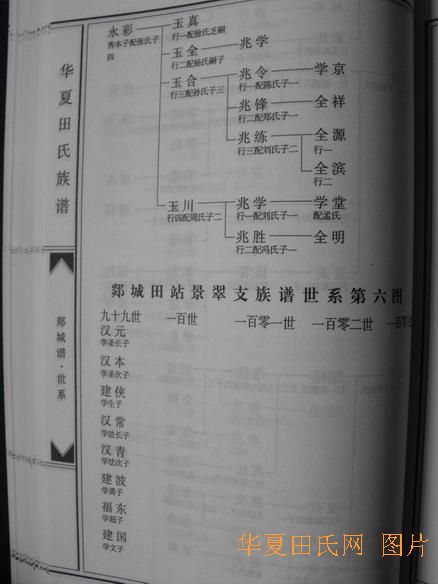 华夏田氏族谱
郯城谱·世系
水彩
秀本子配张氏子
四
玉真
行一配徐氏乏嗣
玉全
行二配杨氏嗣子
兆学
玉合
行三配孙氏子三
兆令
行一配陈氏子一
学京
行一
兆锋
行二配郑氏子一
全祥
兆练
行三配刘氏子二
全源
行一
全滨
行二
玉川
行四配周氏子二
兆学
行一配刘氏子一
学堂
配孟氏
兆胜
行二配冯氏子一
全明
郯城田站景翠支族谱世系第六图
九十九世 一百世 一百零一世 一百零二世 一百零三
汉元
学圣长子
汉本
学圣次子
建侠
学生子
汉常
学法长子
汉青
学法次子
建波
学勇子
福东
学超子
建国
学文子
华夏田氏网 图片